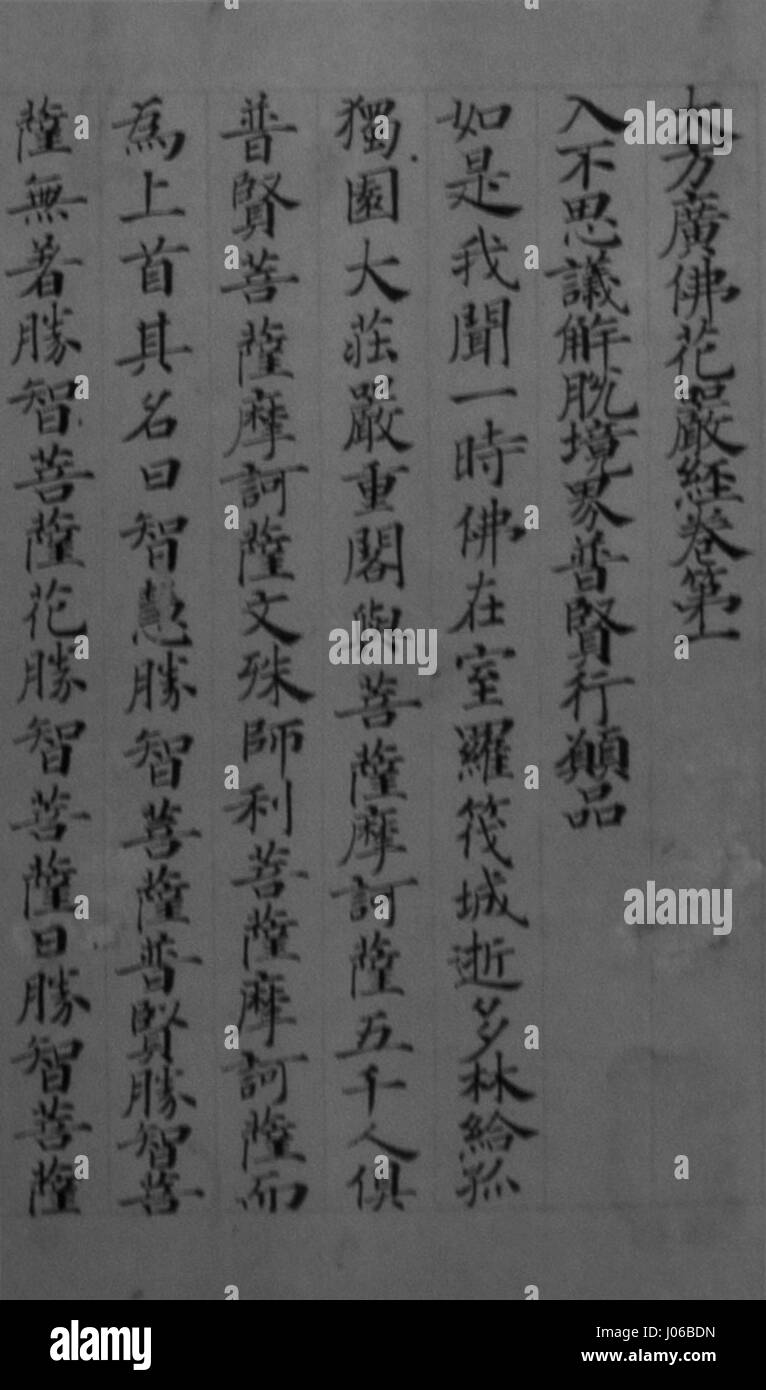 大方廣佛花嚴經卷第一
入不思議解脫境界普賢行願品
如是我聞一時佛在室羅筏城逝多林給孤
獨園大莊嚴重閣與菩薩摩訶薩五千人俱
普賢菩薩摩訶薩文殊師利菩薩摩訶薩而
為上首其名曰智慧勝智菩薩普賢勝智菩
薩無著勝智菩薩花勝智菩薩日勝智菩薩
alamy
alamy stock photo
J06BDN
www.alamy.com